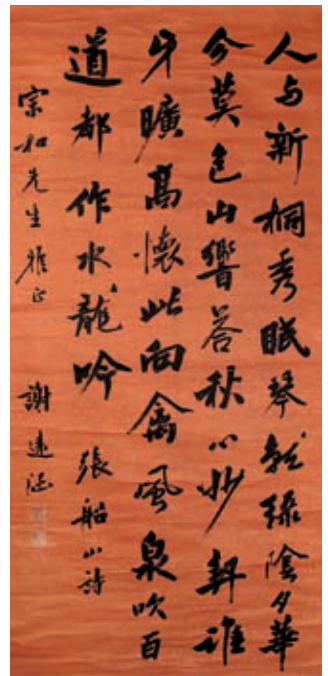 人与新桐秀眠琴就綠陰夕華
今莫色山響答秋心妙契誰
牙曠高懷此向禽風泉吹百
道都作水龍吟 張船山詩
宗和先生雅正 謝遠涵